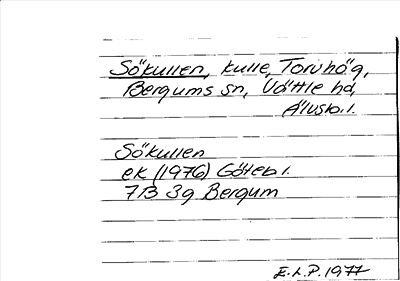 Sökullen, kulle, Toruhög,
Bergums sn, Vättle hd,
Älvsb. l.
Sökullen
ek (1976) Göteb l.
7B 3g Bergum
E.L.P. 1977